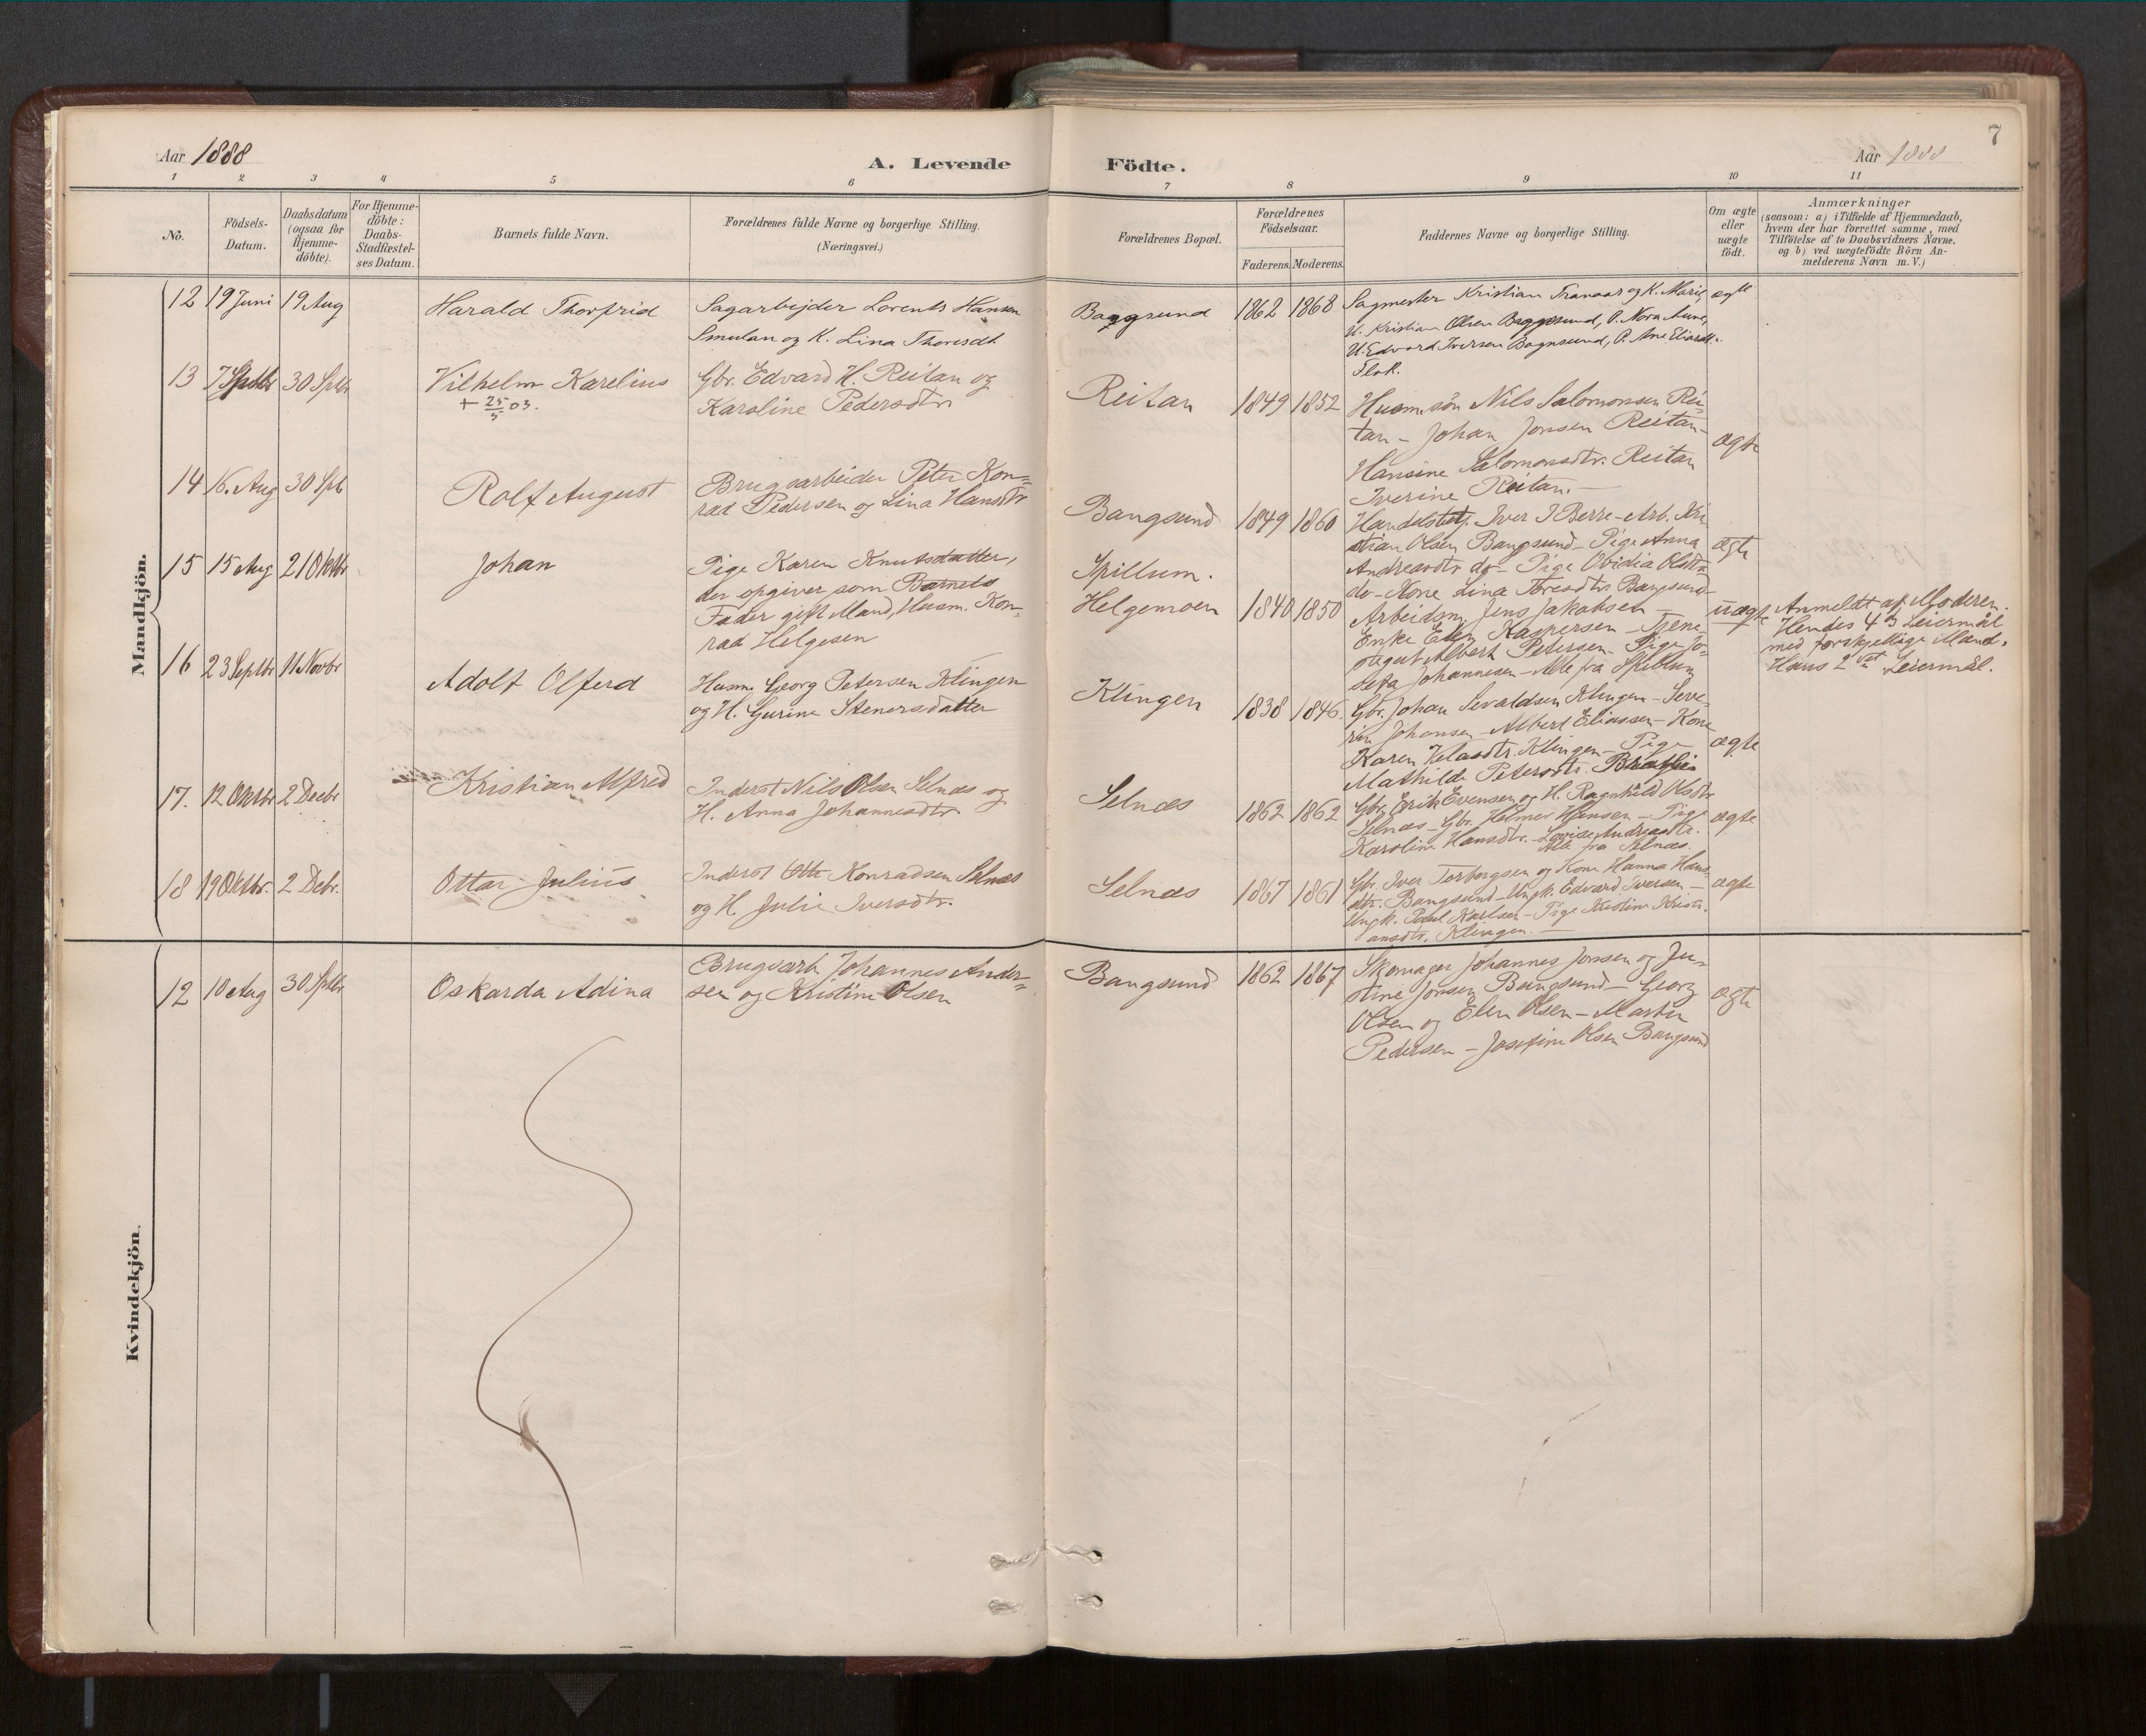 7
Aar 1888
A. Levende Födte.
Aar 1888
1 2 3 4 5 6 7 8 9 10 11
No.
Födsels-
Datum.
Daabsdatum
(ogsaa for
Hjemme-
döbte).
For Hjemme-
döbte:
Daabs-
Stadfæstel-
ses Datum.
Barnets fulde Navn.
Forældrenes fulde Navne og borgerlige Stilling.
(Næringsvei.)
Forældrenes Bopæl.
Forældrenes
Födselsaar.
Faderens. Moderens.
Faddernes Navne og borgerlige Stilling.
Om ægte
eller
uægte
födt.
Anmærkninger
(saasom: a) i Tilfælde af Hjemmedaab,
hvem der har forrettet samme, med
Tilföielse af to Daabsvidners Navne,
og b) ved uægtefödte Börn An-
melderens Navn m. V.)
Mandkjön.
12 19 Juni 19 Aug
Harald Thorfrid
Sagarbejder Lorents Hansen
Smulan og K. Lina Thoresdt
Baggsund
1862 1868
Sagmester Kristian Tranaas og K. Marie,
U. Kristian Olsen Baggsund, P. Nora Aune,
U. Edvard Iversen Bagnsund, P. Ane
Flak.
ægte
13 7 Septbr 30 Sptbr
Vilhelm Karelius
+ 25/5 03.
Gbr. Edvard H. Reitan og
Karoline Pedersdtr
Reitan
1849 1852
Husm. sön Nils Salomonsen Rei-
tan - Johan Jonsen Reitan -
Hansine Salomonsdtr. Reitan
Iverine Reitan. -
ægte
14 16. Aug 30 Spt
Rolf August
Brugsarbeider Peter Kon-
rad Pedersen og Lina Hansdtr
Bangsund
1849 1860
Handelsbetj. Iver I Berre - Arb. Kri
stian Olsen Bangsund - Pige Anna
Andreasdtr do - Pige Obidia Olsdtr
do - Kone Lina Toresdtr Bangsund
ægte
15 15 Aug 21 Oktbr
Johan
Pige Karen Knutsdatter,
der opgiver som Barnets
Fader gift Mand, Husm. Kon-
rad Helgesen
Spillum.
Helgemoen
1840 1850
Arbeidsm. Jens Jakobsen -
Enke Elen Kaspersen - Tjene
stegut Albert Petersen - Pige Jo-
sefa Johannesen - Alle fra Spillum
uægte
Anmeldt af Moderen.
Hendes 4 Leiermål
med forskjellige Mand.
Hans 2det Leiermål.
16 23 Septbr 11 Novbr
Adolf Olferd
Husm. Georg Petersen Klingen
og H. Gurine Stenersdatter
Klingen
1838 1846.
Gbr. Johan Sevaldsen Klingen - Seve-
rin Johansen - Albert Eliassen - Kone
Karen Klingen - Pige
Mathilde Petersdtr.
ægte
17. 12 Oktbr 2 Decbr
Kristian Alfred
Inderst Nils Olsen Selnæs og
H. Anna Johannesdtr.
Selnæs
1862 1862
Gbr. Erik Evensen og H. Ragnhild Olsdtr
Selnæs - Gbr. Helmer Hansen - Pige
Karoline Hansdtr. - Lovise Andreasdtr.
Alle fra Selnæs.
ægte
18 19 Oktbr. 2 Debr.
Ottar Julius
Inderst Otto Konradsen Selnæs
og H. Julie Iversdtr.
Selnæs
1867 1861
Gbr. Iver Torbergsen og Kone Hanna Hans-
dtr. Bangsund - Ungk. Edvard Iversen -
Ungk. Paul Karlsen - Pige Kristine Kristi-
ansdtr. Klingen. -
ægte
Kvindekjön.
12 10 Aug 30 Sptbr
Oskarda Adina
Brugsarb. Johannes Ander-
sen og Kristine Olsen
Bangsund
1862 1867
Skomager Johannes Jonsen og Ju-
stine Jonsen Bangsund - Georg
Olsen og Elen Olsen - Martin
Pedersen - Josefine Olsen Bangsund
ægte